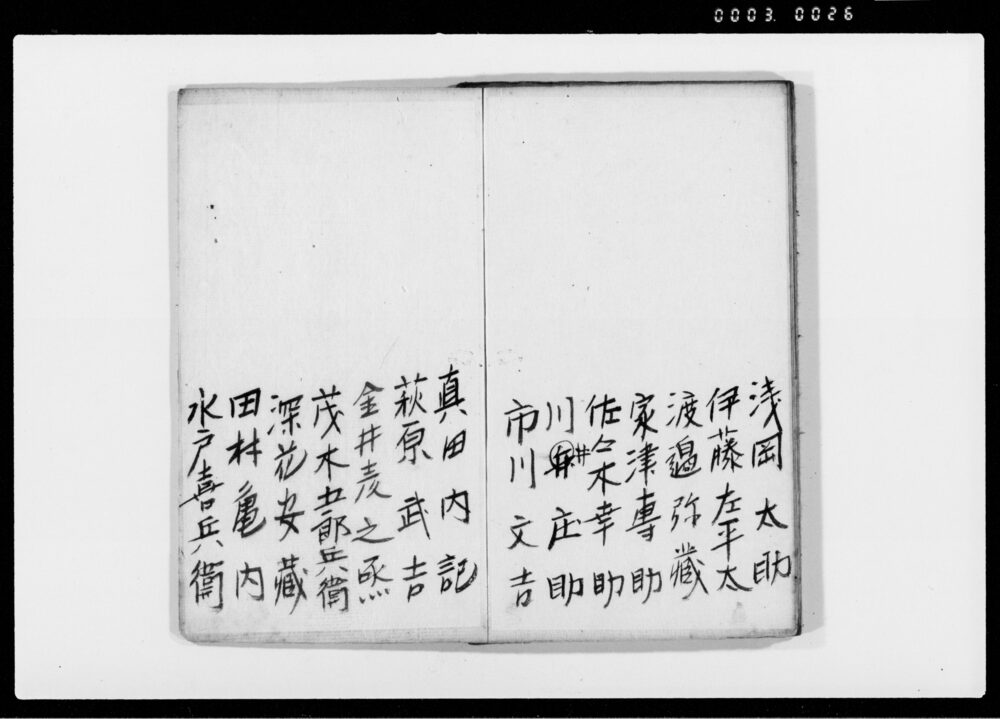 0003. 0026
浅岡太助
伊藤左平太
渡邉弥藏
家津專助
佐々木幸助
川井庄助
市川文吉
真田内記
萩原武吉
金井彦之丞
茂木五郎兵衛
深花安藏
田林亀内
水戸喜兵衛